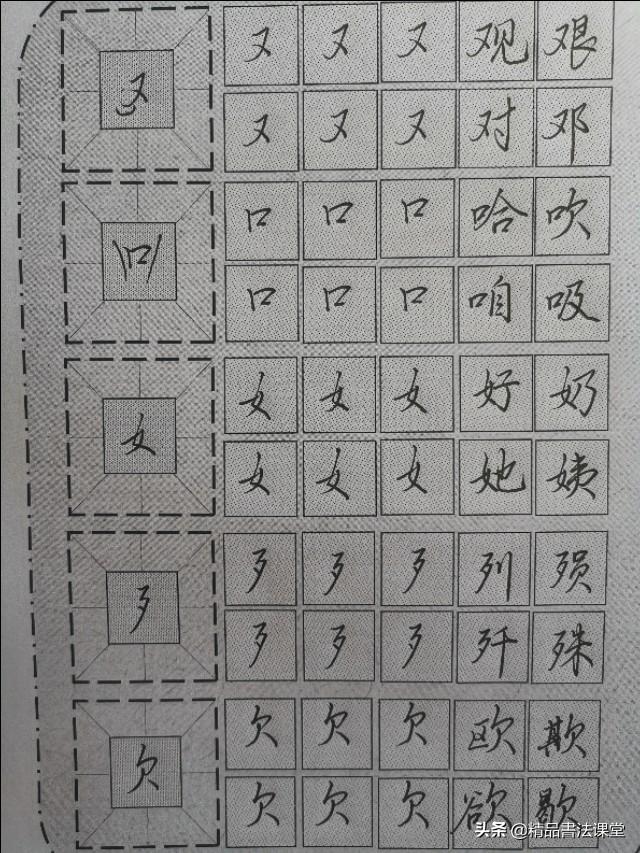 又 又 又 又 观 艰
又 又 又 对 邓
口 口 口 口 哈 吹
口 口 口 咱 吸
女 女 女 女 好 奶
女 女 女 她 姨
歹 歹 歹 歹 列 殒
歹 歹 歹 歼 殊
欠 欠 欠 欠 欧 欺
欠 欠 欠 欲 歇
头条 @精品書法课堂